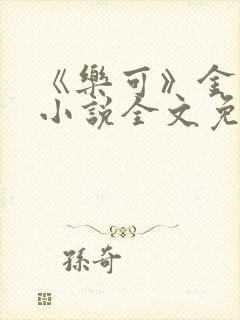 《樂可》金
小說全文免
孫奇